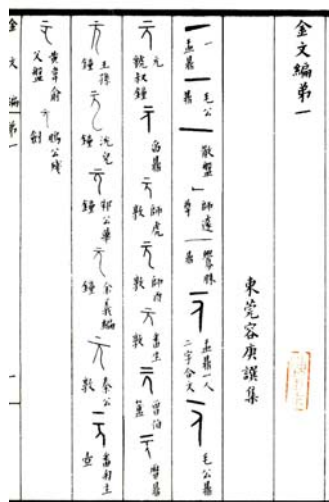 金文編弟一
東莞容庚譔集
一 盂鼎 毛公鼎 散盤 師遽 盂鼎一人二字合文 毛公鼎
元 虢叔鐘 曶鼎 師虎敦 師酉敦 番生敦 曾伯簠 曆鼎
王孫鐘 沇兒鐘 邾公華鐘 余義編鐘 秦公敦 番匊生壺
黃韋俞父盤 公劍
金文編 弟一 一